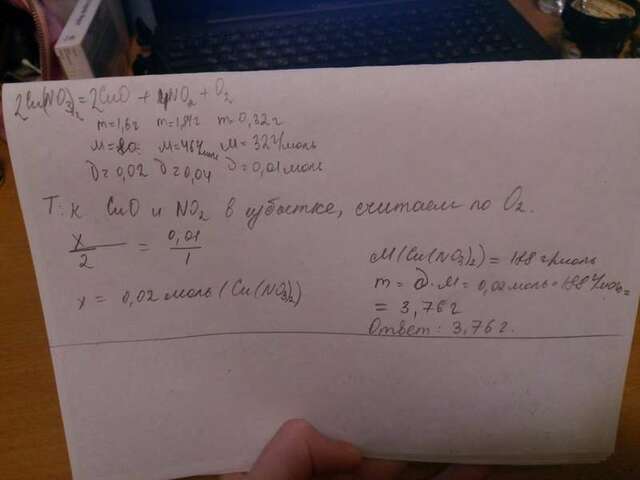 2Cu(NO3)2 = 2CuO + 4NO2 + O2
m=1,6г m=1,84г m=0,32г
M=80 M=46г/моль M=32г/моль
ν=0,02 ν=0,04 ν=0,01моль
Т. к CuO и NO2 в избытке, считаем по O2.
x/2 = 0,01/1
x = 0,02 моль (Cu(NO3)2)
M(Cu(NO3)2) = 188 г/моль
m = ν·M = 0,02моль·188г/моль=
= 3,76г
Ответ: 3,76г.